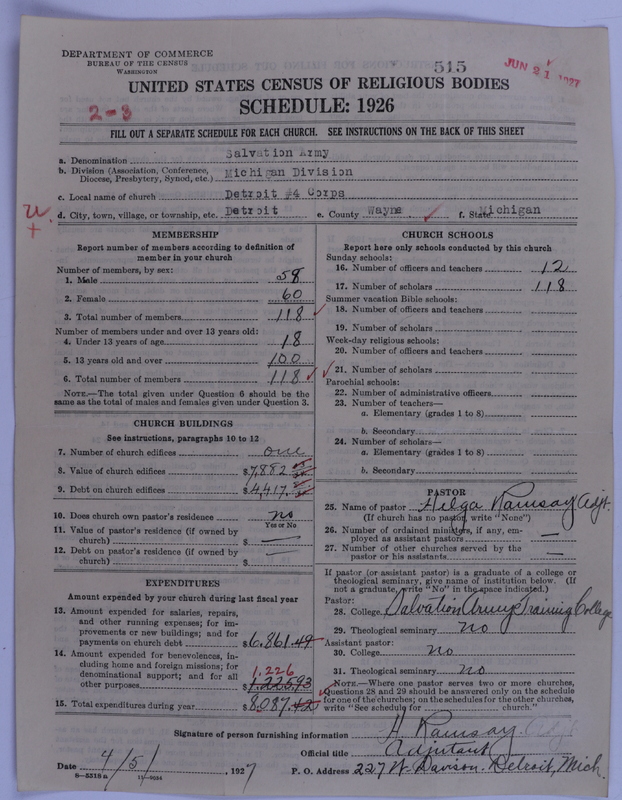 DEPARTMENT OF COMMERCE
BUREAU OF THE CENSUS
WASHINGTON
515
JUN 21 1927
UNITED STATES CENSUS OF RELIGIOUS BODIES
SCHEDULE: 1926
2-3
FILL OUT A SEPARATE SCHEDULE FOR EACH CHURCH. SEE INSTRUCTIONS ON THE BACK OF THIS SHEET
a. Denomination Salvation Army
b. Division (Association, Conference, Diocese, Presbytery, Synod, etc.) Michigan Division
c. Local name of church Detroit #4 Corps
d. City, town, village, or township, etc. Detroit e. County Wayne f. State Michigan
MEMBERSHIP
Report number of members according to definition of
member in your church
Number of members, by sex:
1. Male 58
2. Female 60
3. Total number of members 118
Number of members under and over 13 years old:
4. Under 13 years of age 18
5. 13 years old and over 100
6. Total number of members 118
NOTE.—The total given under Question 6 should be the
same as the total of males and females given under Question 3.
CHURCH BUILDINGS
See instructions, paragraphs 10 to 12
7. Number of church edifices one
8. Value of church edifices $7,882
9. Debt on church edifices $4,417
10. Does church own pastor's residence no
Yes or No
11. Value of pastor's residence (if owned by
church) $ —
12. Debt on pastor's residence (if owned by
church) $
EXPENDITURES
Amount expended by your church during last fiscal year
13. Amount expended for salaries, repairs,
and other running expenses; for im-
provements or new buildings; and for
payments on church debt $6,861.49
14. Amount expended for benevolences, in-
cluding home and foreign missions; for
denominational support; and for all
other purposes 1,226
1,225.93
15. Total expenditures during year $8,087.42
CHURCH SCHOOLS
Report here only schools conducted by this church
Sunday schools:
16. Number of officers and teachers 12
17. Number of scholars 118
Summer vacation Bible schools:
18. Number of officers and teachers
19. Number of scholars
Week-day religious schools:
20. Number of officers and teachers
21. Number of scholars
Parochial schools:
22. Number of administrative officers
23. Number of teachers—
a. Elementary (grades 1 to 8)
b. Secondary
24. Number of scholars—
a. Elementary (grades 1 to 8)
b. Secondary
PASTOR
25. Name of pastor Helga Ramsay Adjt.
(If church has no pastor, write "None")
26. Number of ordained ministers, if any, em-
ployed as assistant pastors —
27. Number of other churches served by the
pastor or his assistants —
If pastor (or assistant pastor) is a graduate of a college or
theological seminary, give name of institution below. (If
not a graduate, write "No" in the space indicated.)
Pastor:
28. College Salvation Army Training College
29. Theological seminary no
Assistant pastor:
30. College no
31. Theological seminary no
NOTE.—Where one pastor serves two or more churches,
Questions 28 and 29 should be answered only on the schedule
for one of the churches; on the schedules for the other churches,
write "See schedule for church."
Signature of person furnishing information H. Ramsay Adjt
Official title Adjutant
Date 4/5/, 1927 P. O. Address 227 W. Davison. Detroit, Mich.
8-5518a 11-9034